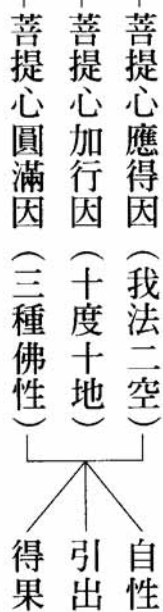 菩提心應得因（我法二空）
菩提心加行因（十度十地）
菩提心圓滿因（三種佛性）
自性
引出
得果